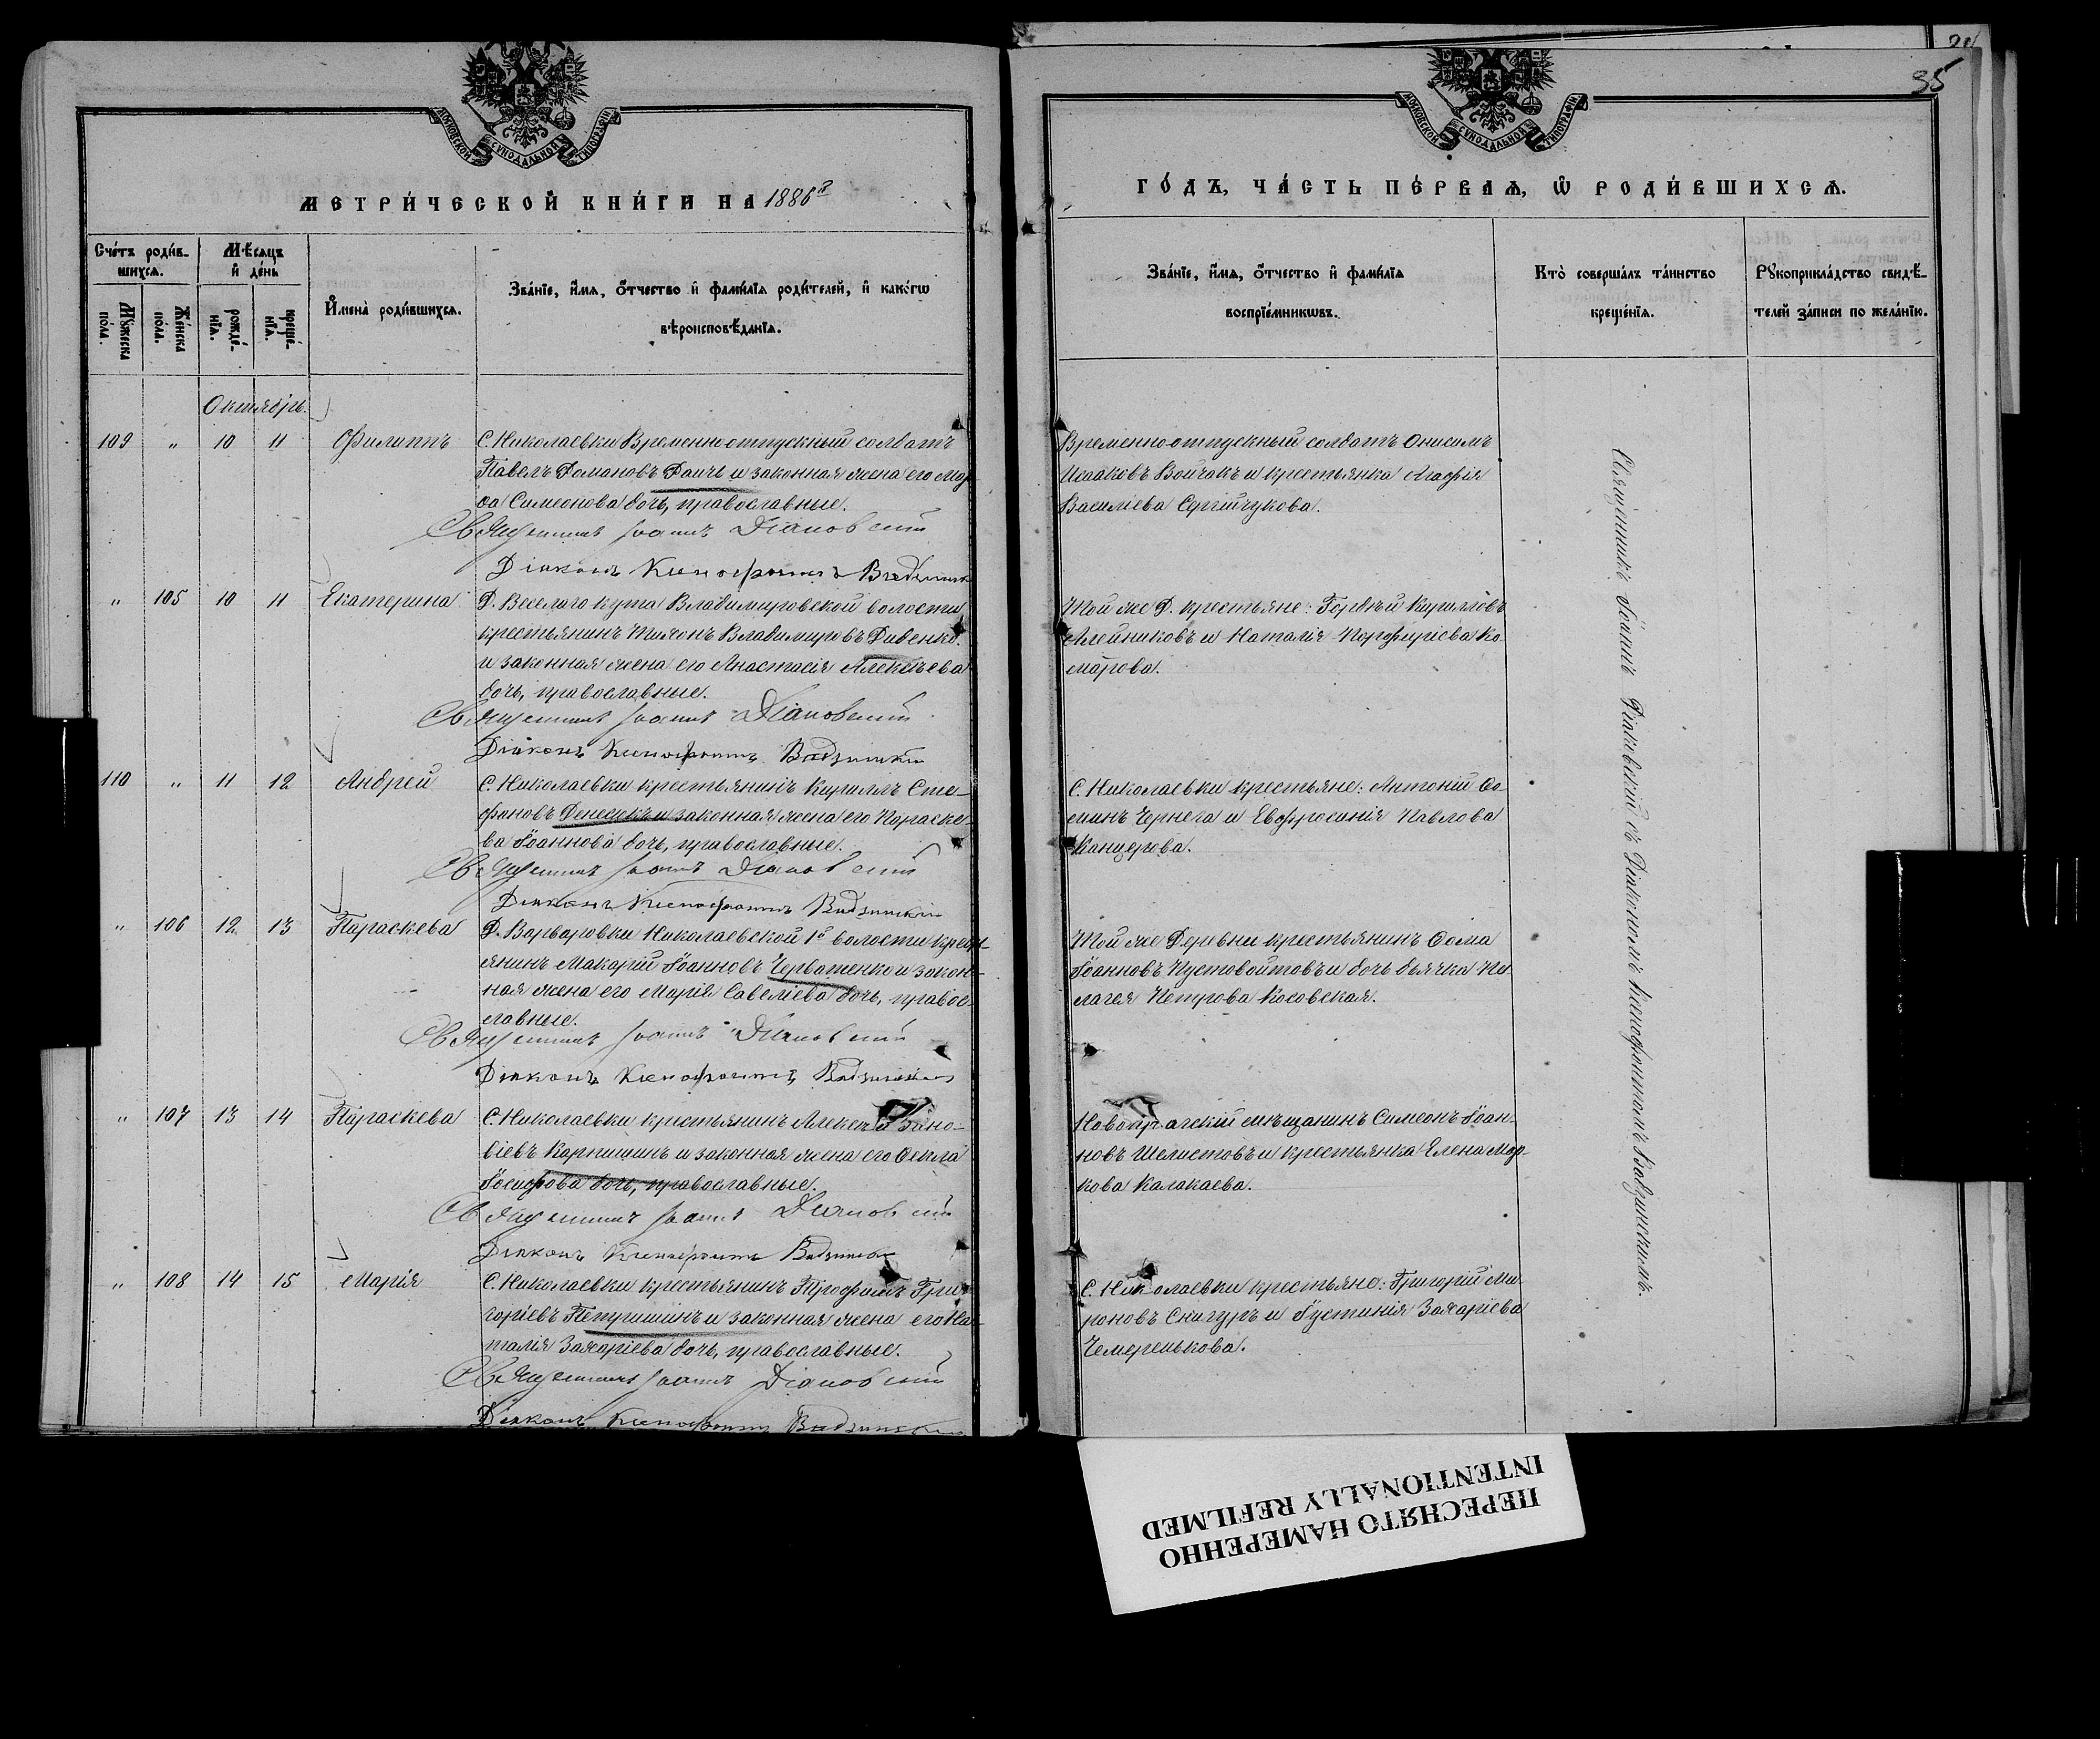 МОСКОВСКОЙ СУНОДАЛЬНОЙ ТИПОГРАФІИ
МЕТРИ́ЧЕСКОЙ КНИ́ГИ НА 1886й
Сче́тъ роди́в-
шихсѧ.
Мѣ́сѧцъ
и҆ де́нь
Мꙋ́жеска
по́ла.
Же́нска
по́ла.
рожде́-
нїѧ.
креще́-
нїѧ.
И҆мена̀ роди́вшихсѧ.
Зва́нїе, и҆́мѧ, ѻ҆́тчество и҆ фами́лїѧ роди́телей, и҆ како́гѡ
вѣроисповѣ́данїѧ.
Октябрь.
109 " 10 11 Филиппъ С. Николаевки Временно-отпускный солдатъ
Павелъ Романовъ и законная жена его Мар-
ѳа Симеонова дочь, православные.
Священникъ Іоаннъ Діаковскій
Діаконъ Ксенофонтъ Вадзинскій
" 105 10 11 Екатерина Д. Веселаго кута Владимировской волости
крестьянинъ Тихонъ Владимировъ Диденко
и законная жена его Анастасія Алексѣева
дочь, православные.
Священникъ Іоаннъ Діаковскій
Діаконъ Ксенофонтъ Вадзинскій
110 " 11 12 Андрей С. Николаевки крестьянинъ Кириллъ Сте-
фановъ Денесюкъ и законная жена его Параске-
ва Іоаннова дочь, православные.
Священникъ Іоаннъ Діаковскій
Діаконъ Ксенофонтъ Вадзинскій
" 106 12 13 Параскева Д. Варваровки Николаевской 1й волости крест-
янинъ Макарій Іоанновъ Черватенко и закон-
ная жена его Марія Савеліева дочь, правос-
лавные.
Священникъ Іоаннъ Діаковскій
Діаконъ Ксенофонтъ Вадзинскій
" 107 13 14 Параскева С. Николаевки крестьянинъ Алексѣй Зино-
віевъ Карпишинъ и законная жена его Ѳекла
Іосифова дочь, православные.
Священникъ Іоаннъ Діаковскій
Діаконъ Ксенофонтъ Вадзинскій
" 108 14 15 Марія С. Николаевки крестьянинъ Трофимъ Гри-
горіевъ Петришинъ и законная жена его На-
талія Захаріева дочь, православные.
Священникъ Іоаннъ Діаковскій
Діаконъ Ксенофонтъ Вадзинскій
35
МОСКОВСКОЙ СУНОДАЛЬНОЙ ТИПОГРАФІИ
ГО́ДЪ, ЧА́СТЬ ПЕ́РВАѦ, Ѡ҆ РОДИ́ВШИХСѦ.
Зва́нїе, и҆́мѧ, ѻ҆́тчество и҆ фами́лїѧ
воспрїе́мникѡвъ.
Кто̀ соверша́лъ та́инство
креще́нїѧ.
Рꙋкоприкла́дство свидѣ́-
телей за́писи по жела́нїю.
Временно-отпускный солдатъ Онисимъ
Исааковъ Войчакъ и крестьянка Агафія
Василіева Сергійчукова.
Той же Д. крестьяне: Гордѣй Кирилловъ
Алейниковъ и Наталія Порфиріева Ко-
марова.
С. Николаевки крестьяне: Антоній Ѳо-
минъ Чернега и Евфросинія Павлова
Канцерова.
Той же Деревни крестьянинъ Ѳома
Іоанновъ Пустовойтовъ и дочь дьячка Пе-
лагея Петрова Косовская.
Новопражскій мѣщанинъ Симеонъ Іоан-
новъ Шелистовъ и крестьянка Елена Мар-
кова Калакаева.
С. Николаевки крестьяне: Григорій Ми-
роновъ Снигуръ и Іустинія Захаріева
Чемеренькова.
Священникъ Іоаннъ Діаковскій съ Діакономъ Ксенофонтомъ Вадзинскимъ.
ПЕРЕСНЯТО НАМЕРЕННО
INTENTIONALLY REFILMED